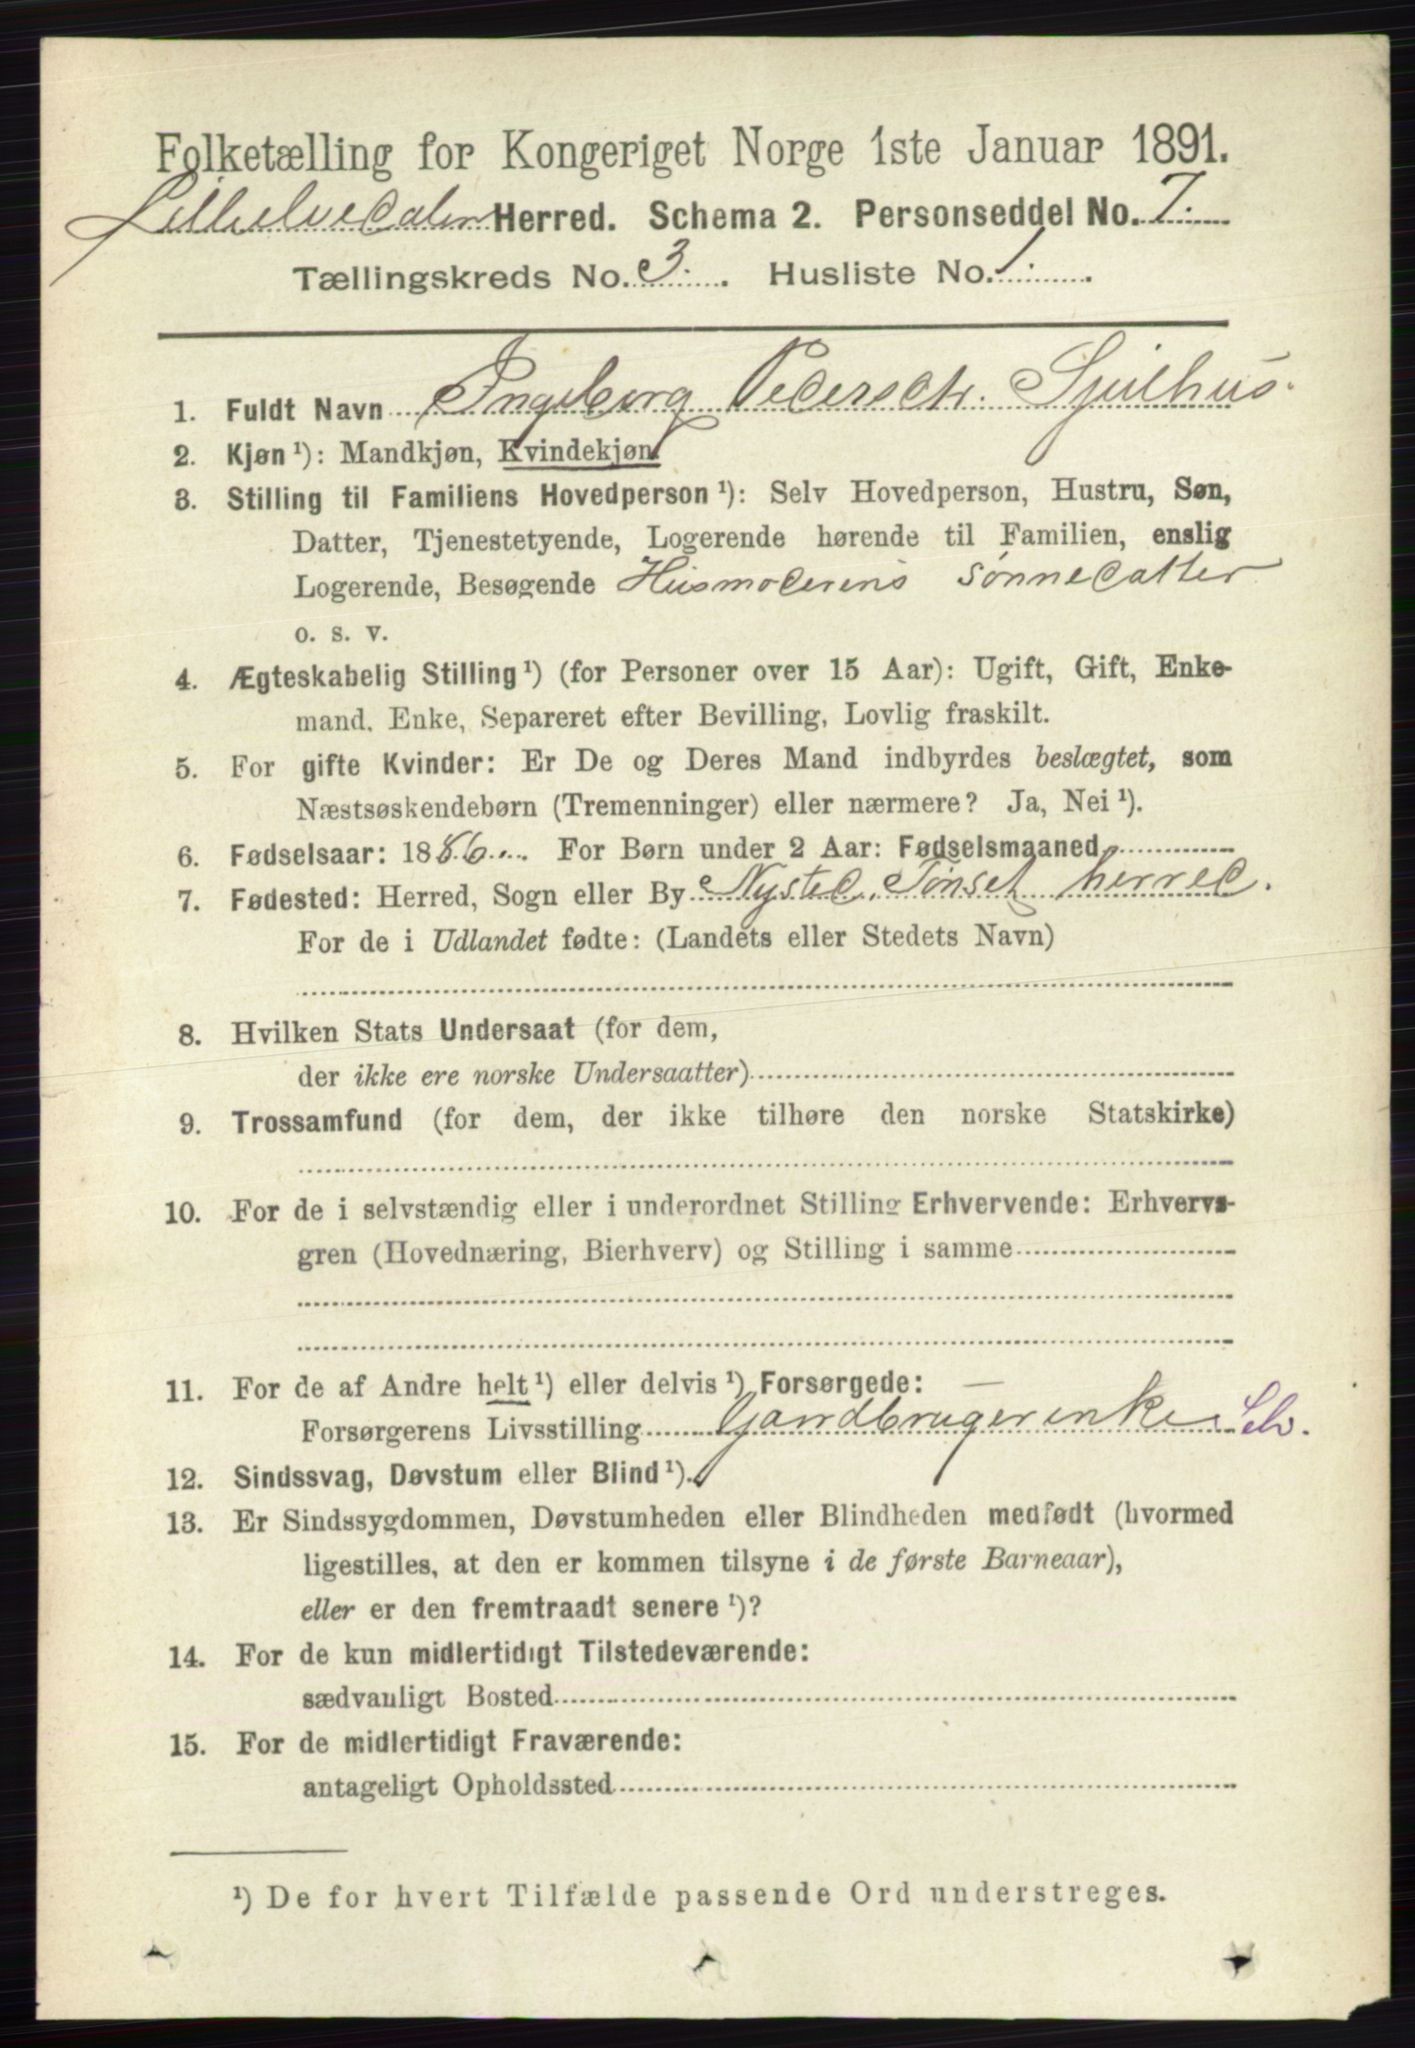 Folketælling for Kongeriget Norge 1ste Januar 1891.
Lilleelvedalen Herred. Schema 2. Personseddel No. 7.
Tællingskreds No. 3. Husliste No. 1.
1. Fuldt Navn Ingeborg Pedersdtr. Sjulhus.
2. Kjøn ¹): Mandkjøn, Kvindekjøn.
3. Stilling til Familiens Hovedperson ¹): Selv Hovedperson, Hustru, Søn,
Datter, Tjenestetyende, Logerende hørende til Familien, enslig
Logerende, Besøgende Husmoderens sønnedatter
o. s. v.
4. Ægteskabelig Stilling ¹) (for Personer over 15 Aar): Ugift, Gift, Enke-
mand, Enke, Separeret efter Bevilling, Lovlig fraskilt.
5. For gifte Kvinder: Er De og Deres Mand indbyrdes beslægtet, som
Næstsøskendebørn (Tremenninger) eller nærmere? Ja, Nei ¹).
6. Fødselsaar: 1886. For Børn under 2 Aar: Fødselsmaaned
7. Fødested: Herred, Sogn eller By Nysted, Tønset herred.
For de i Udlandet fødte: (Landets eller Stedets Navn)
8. Hvilken Stats Undersaat (for dem,
der ikke ere norske Undersaatter)
9. Trossamfund (for dem, der ikke tilhøre den norske Statskirke)
10. For de i selvstændig eller i underordnet Stilling Erhvervende: Erhvervs-
gren (Hovednæring, Bierhverv) og Stilling i samme
11. For de af Andre helt ¹) eller delvis ¹) Forsørgede: —
Forsørgerens Livsstilling Gaardbrugerenke Selv.
12. Sindssvag, Døvstum eller Blind ¹).
13. Er Sindssygdommen, Døvstumheden eller Blindheden medfødt (hvormed
ligestilles, at den er kommen tilsyne i de første Barneaar),
eller er den fremtraadt senere ¹)?
14. For de kun midlertidigt Tilstedeværende:
sædvanligt Bosted
15. For de midlertidigt Fraværende:
antageligt Opholdssted
¹) De for hvert Tilfælde passende Ord understreges.